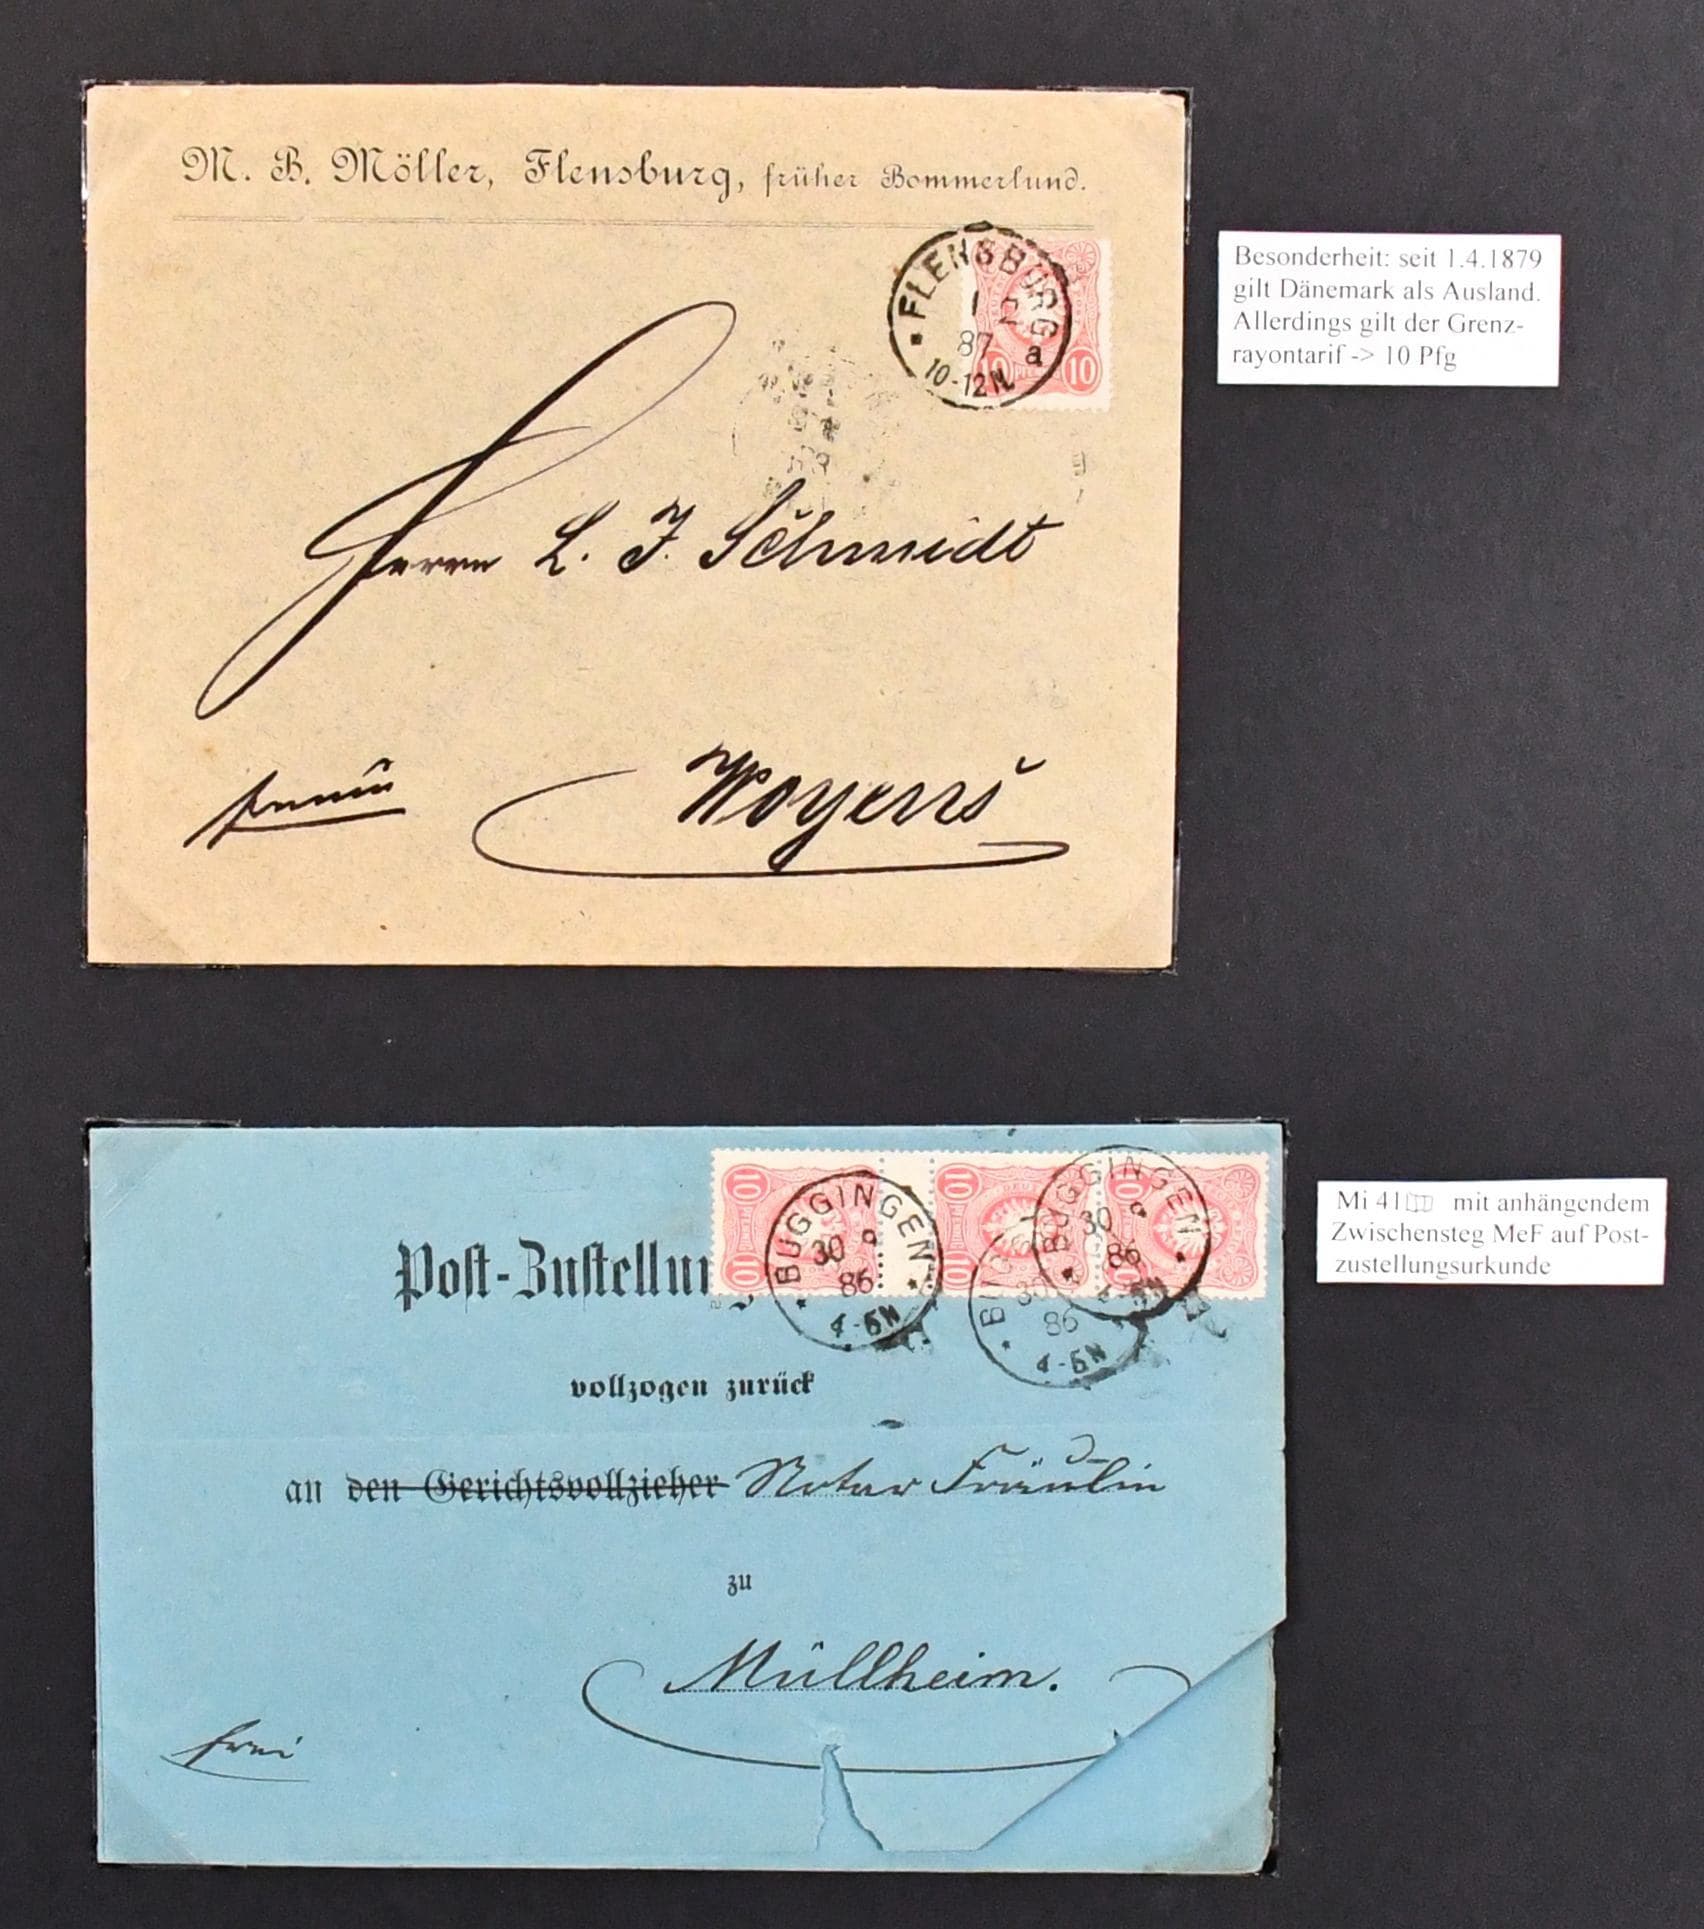 M. B. Möller, Flensburg, früher Bommerlund.
* FLENSBURG
1 2
87 a
10-12N.
10 10
Herrn L. J. Schmidt
Woyens
Besonderheit: seit 1.4.1879
gilt Dänemark als Ausland.
Allerdings gilt der Grenz-
rayontarif -> 10 Pfg
10 10 10 10
* BUGGINGEN *
30 9
86
4-5N
* BUGGINGEN *
30 9
86
4-5N
* BUGGINGEN *
30
86
4-5N
Post-Zustellung
vollzogen zurück
an den Gerichtsvollzieher Notar Fräulin
zu
Müllheim.
frei
Mi 41 mit anhängendem
Zwischensteg MeF auf Post-
zustellungsurkunde